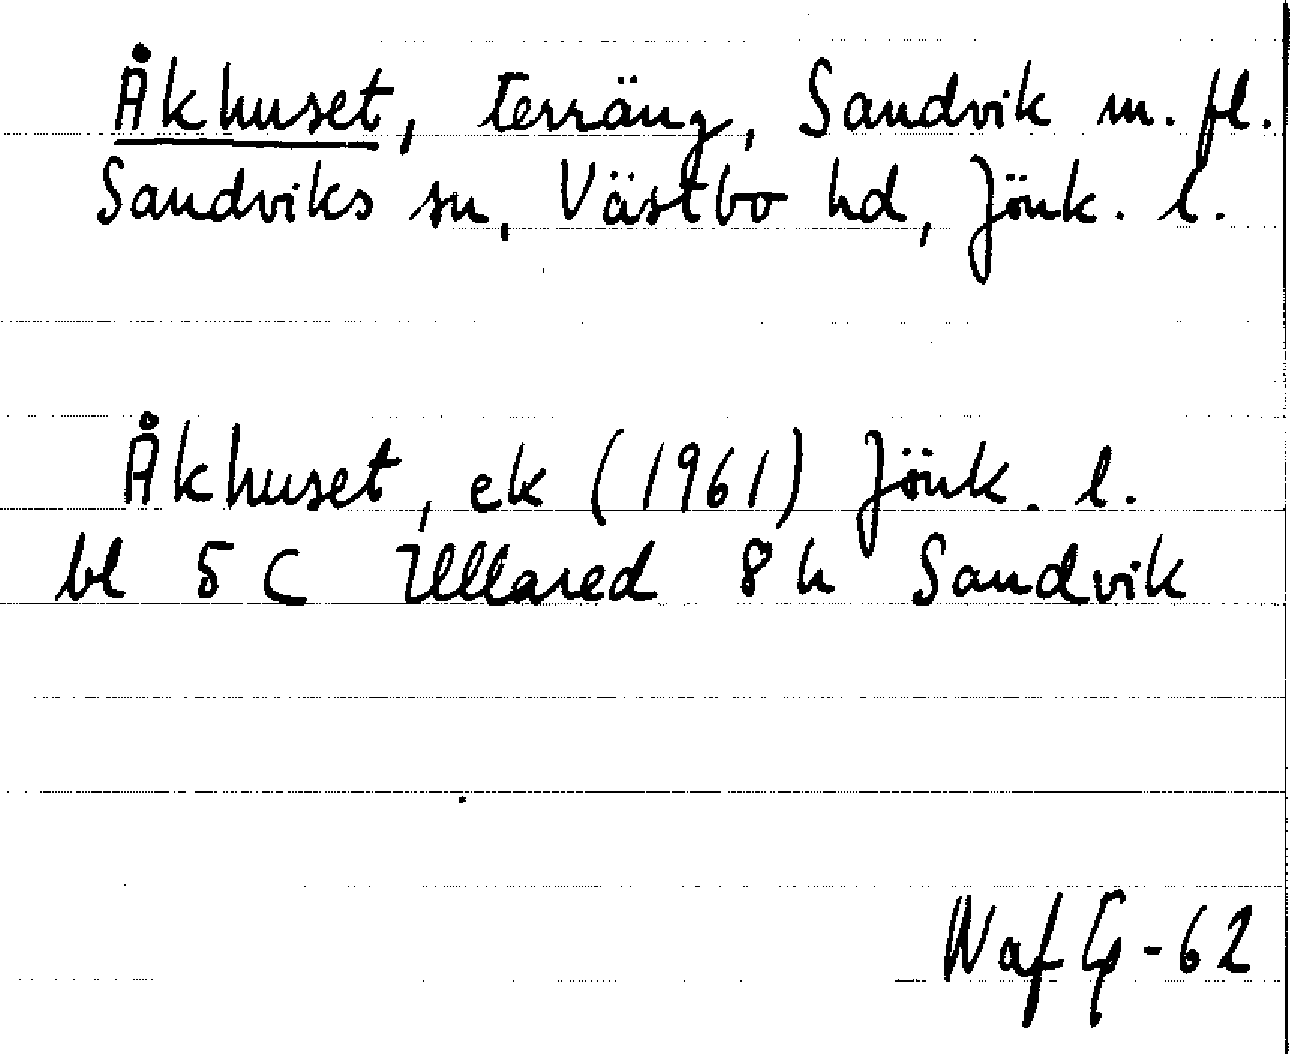 Åkhuset, terräng, Sandvik m. fl.
Sandviks sn, Västbo hd, Jönk. l.
Åkhuset, ek (1961) Jönk. l.
bl 5 C Ullared 8 h Sandvik
Naf G-62